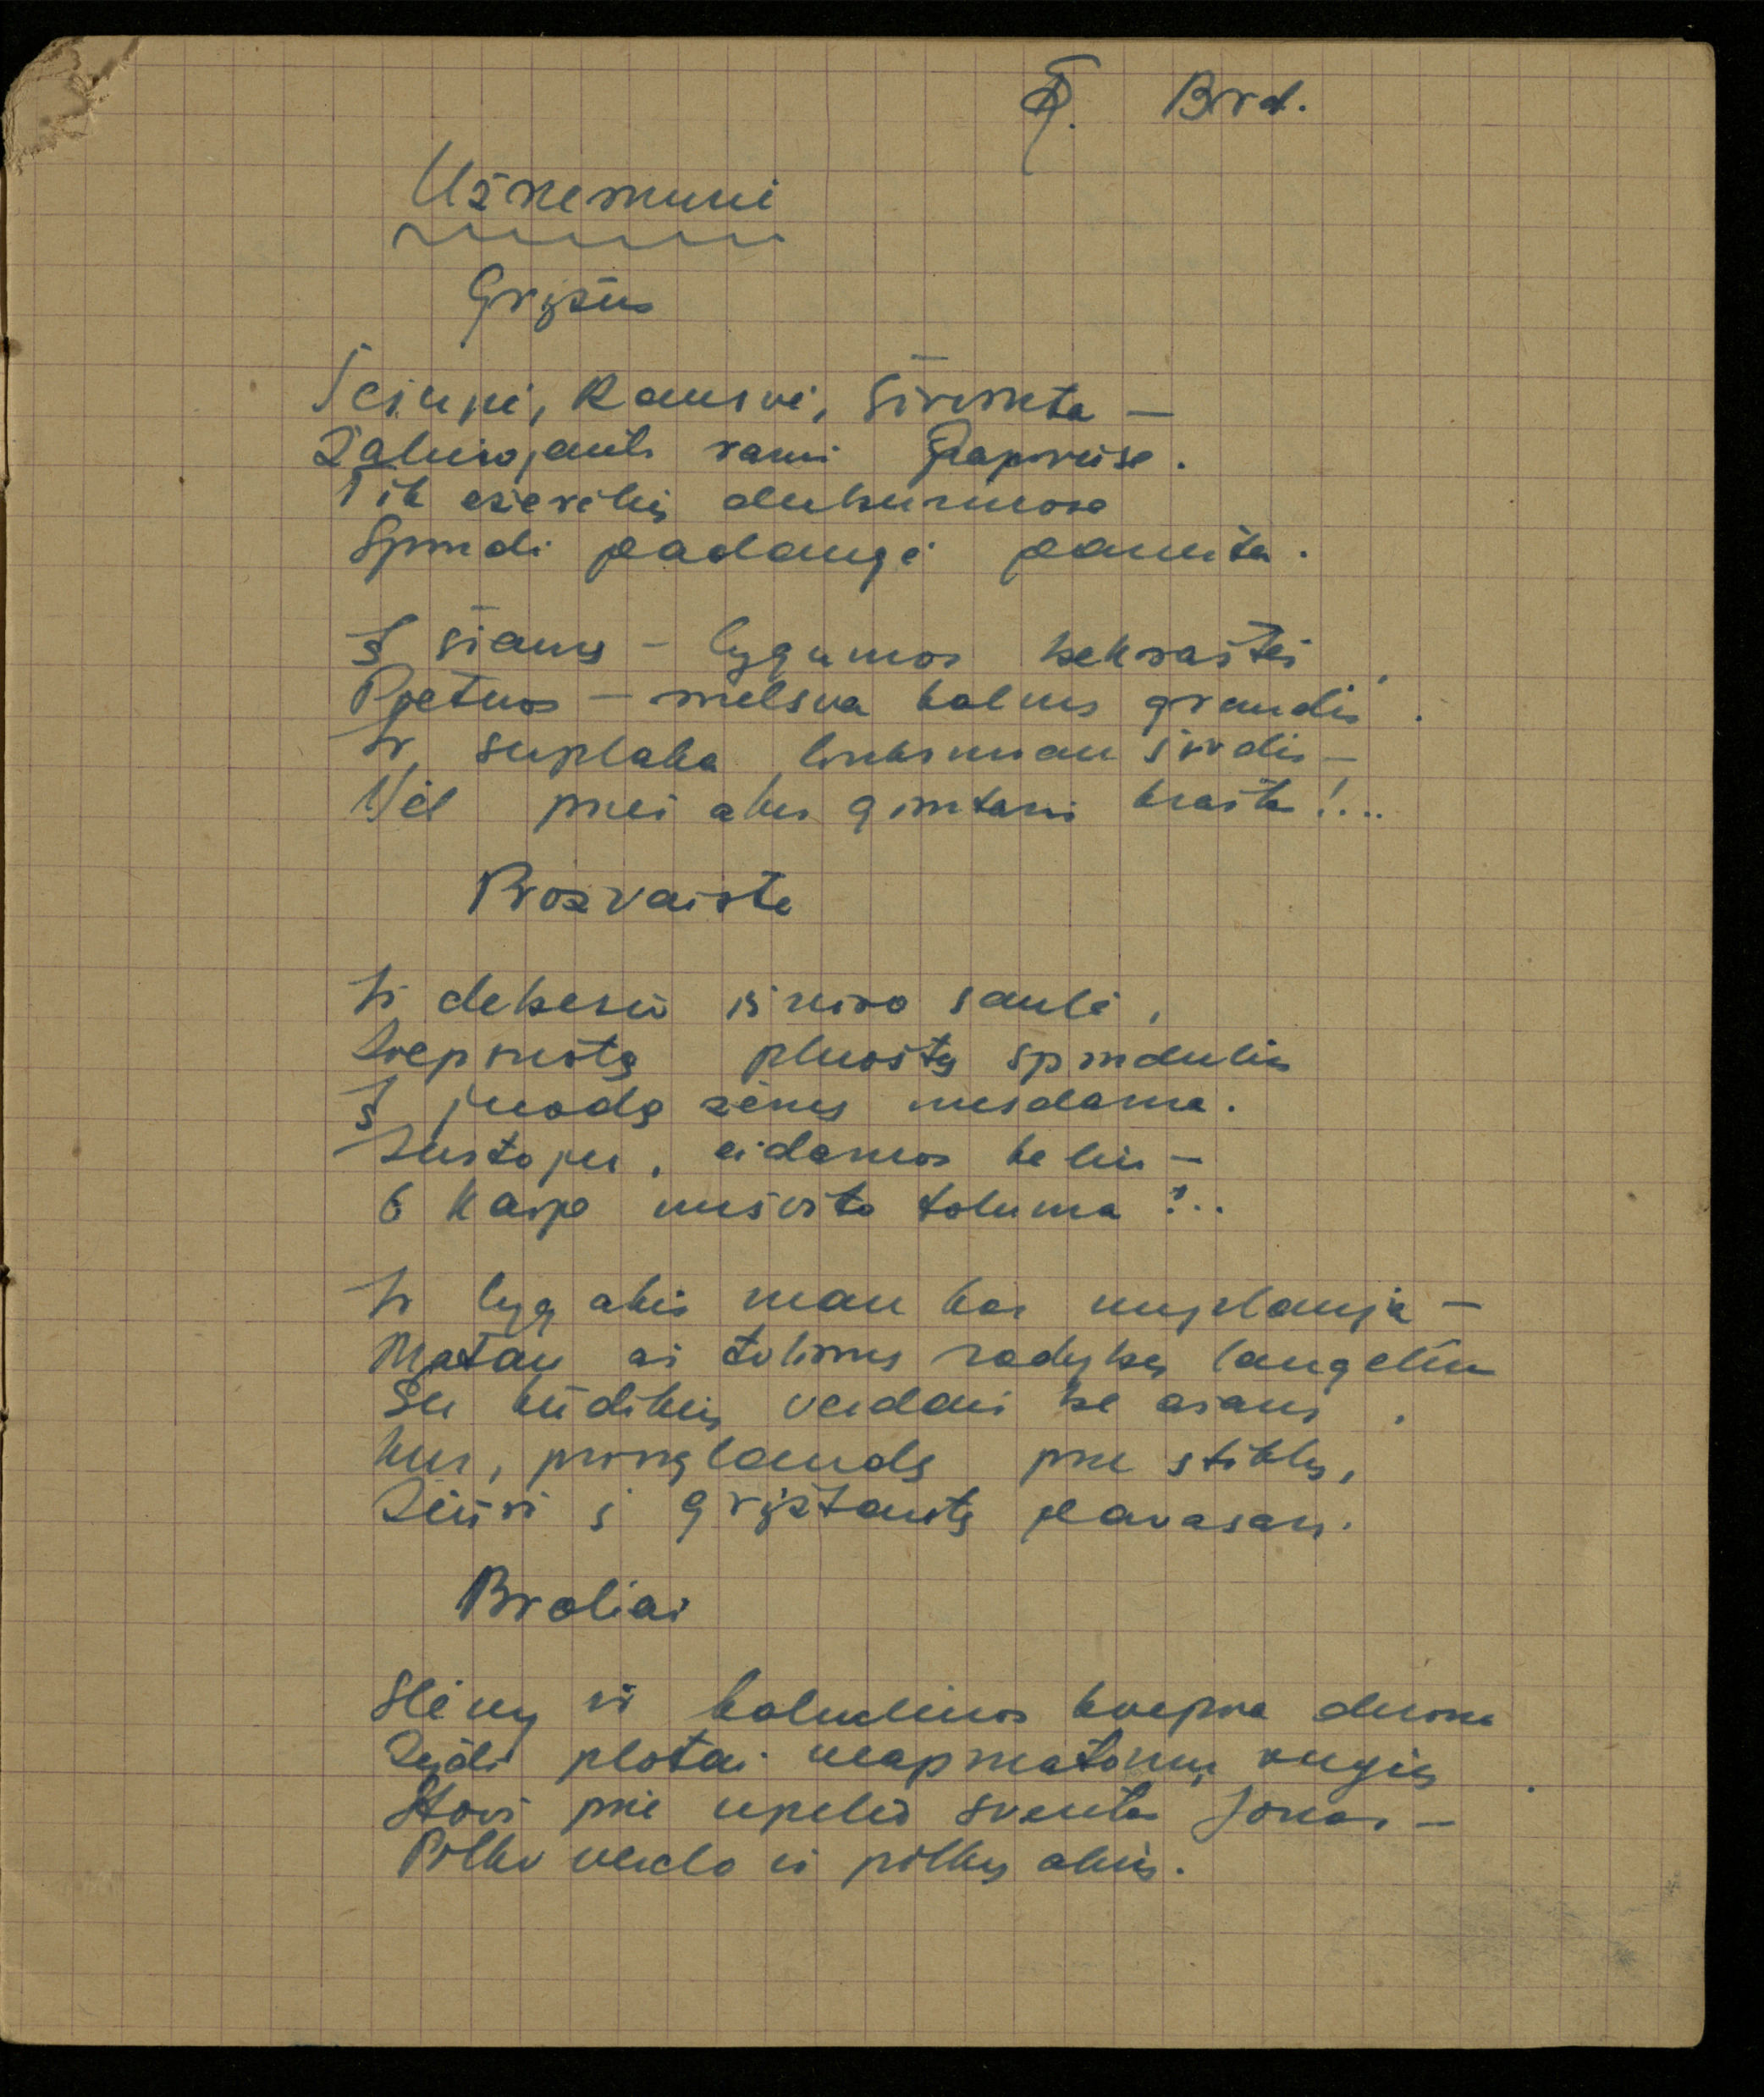 Brd.
Užnemunė
Grįžus
Šešupė, Rausvė, Širvinta —
Žaliuojanti rami Paprūsė.
Tik ežerėlių duburiuose
Spindi padangė pamesta.
Į šiaurę – lygumos bekraštės,
Pietuos – melsva kalvų grandis.
Ir suplaka linksmiau širdis —
Vėl prieš akis gimtasis kraštas!...
Prozvaistė
Iš debesio išniro saulė,
Švepruotą pluoštą spindulių
Į juodą žemę mesdama.
Sustoju, eidamas keliu —
O kaip nušvito toluma!..
Ir lyg akis man kas nuplauja —
Matau aš tolimus sodybų langelius
Su kūdikių veidais be ašarų,
Kur, prisiglaudę prie stiklų,
Žiūri į grįžtantį pavasarį.
Broliai
Slėnų ir kalneliuos kvepia duona
Žydi plotai neapmatomų rugių.
Stovi prie upelio šventas Jonas —
Pilko veido ir pilkų akių.